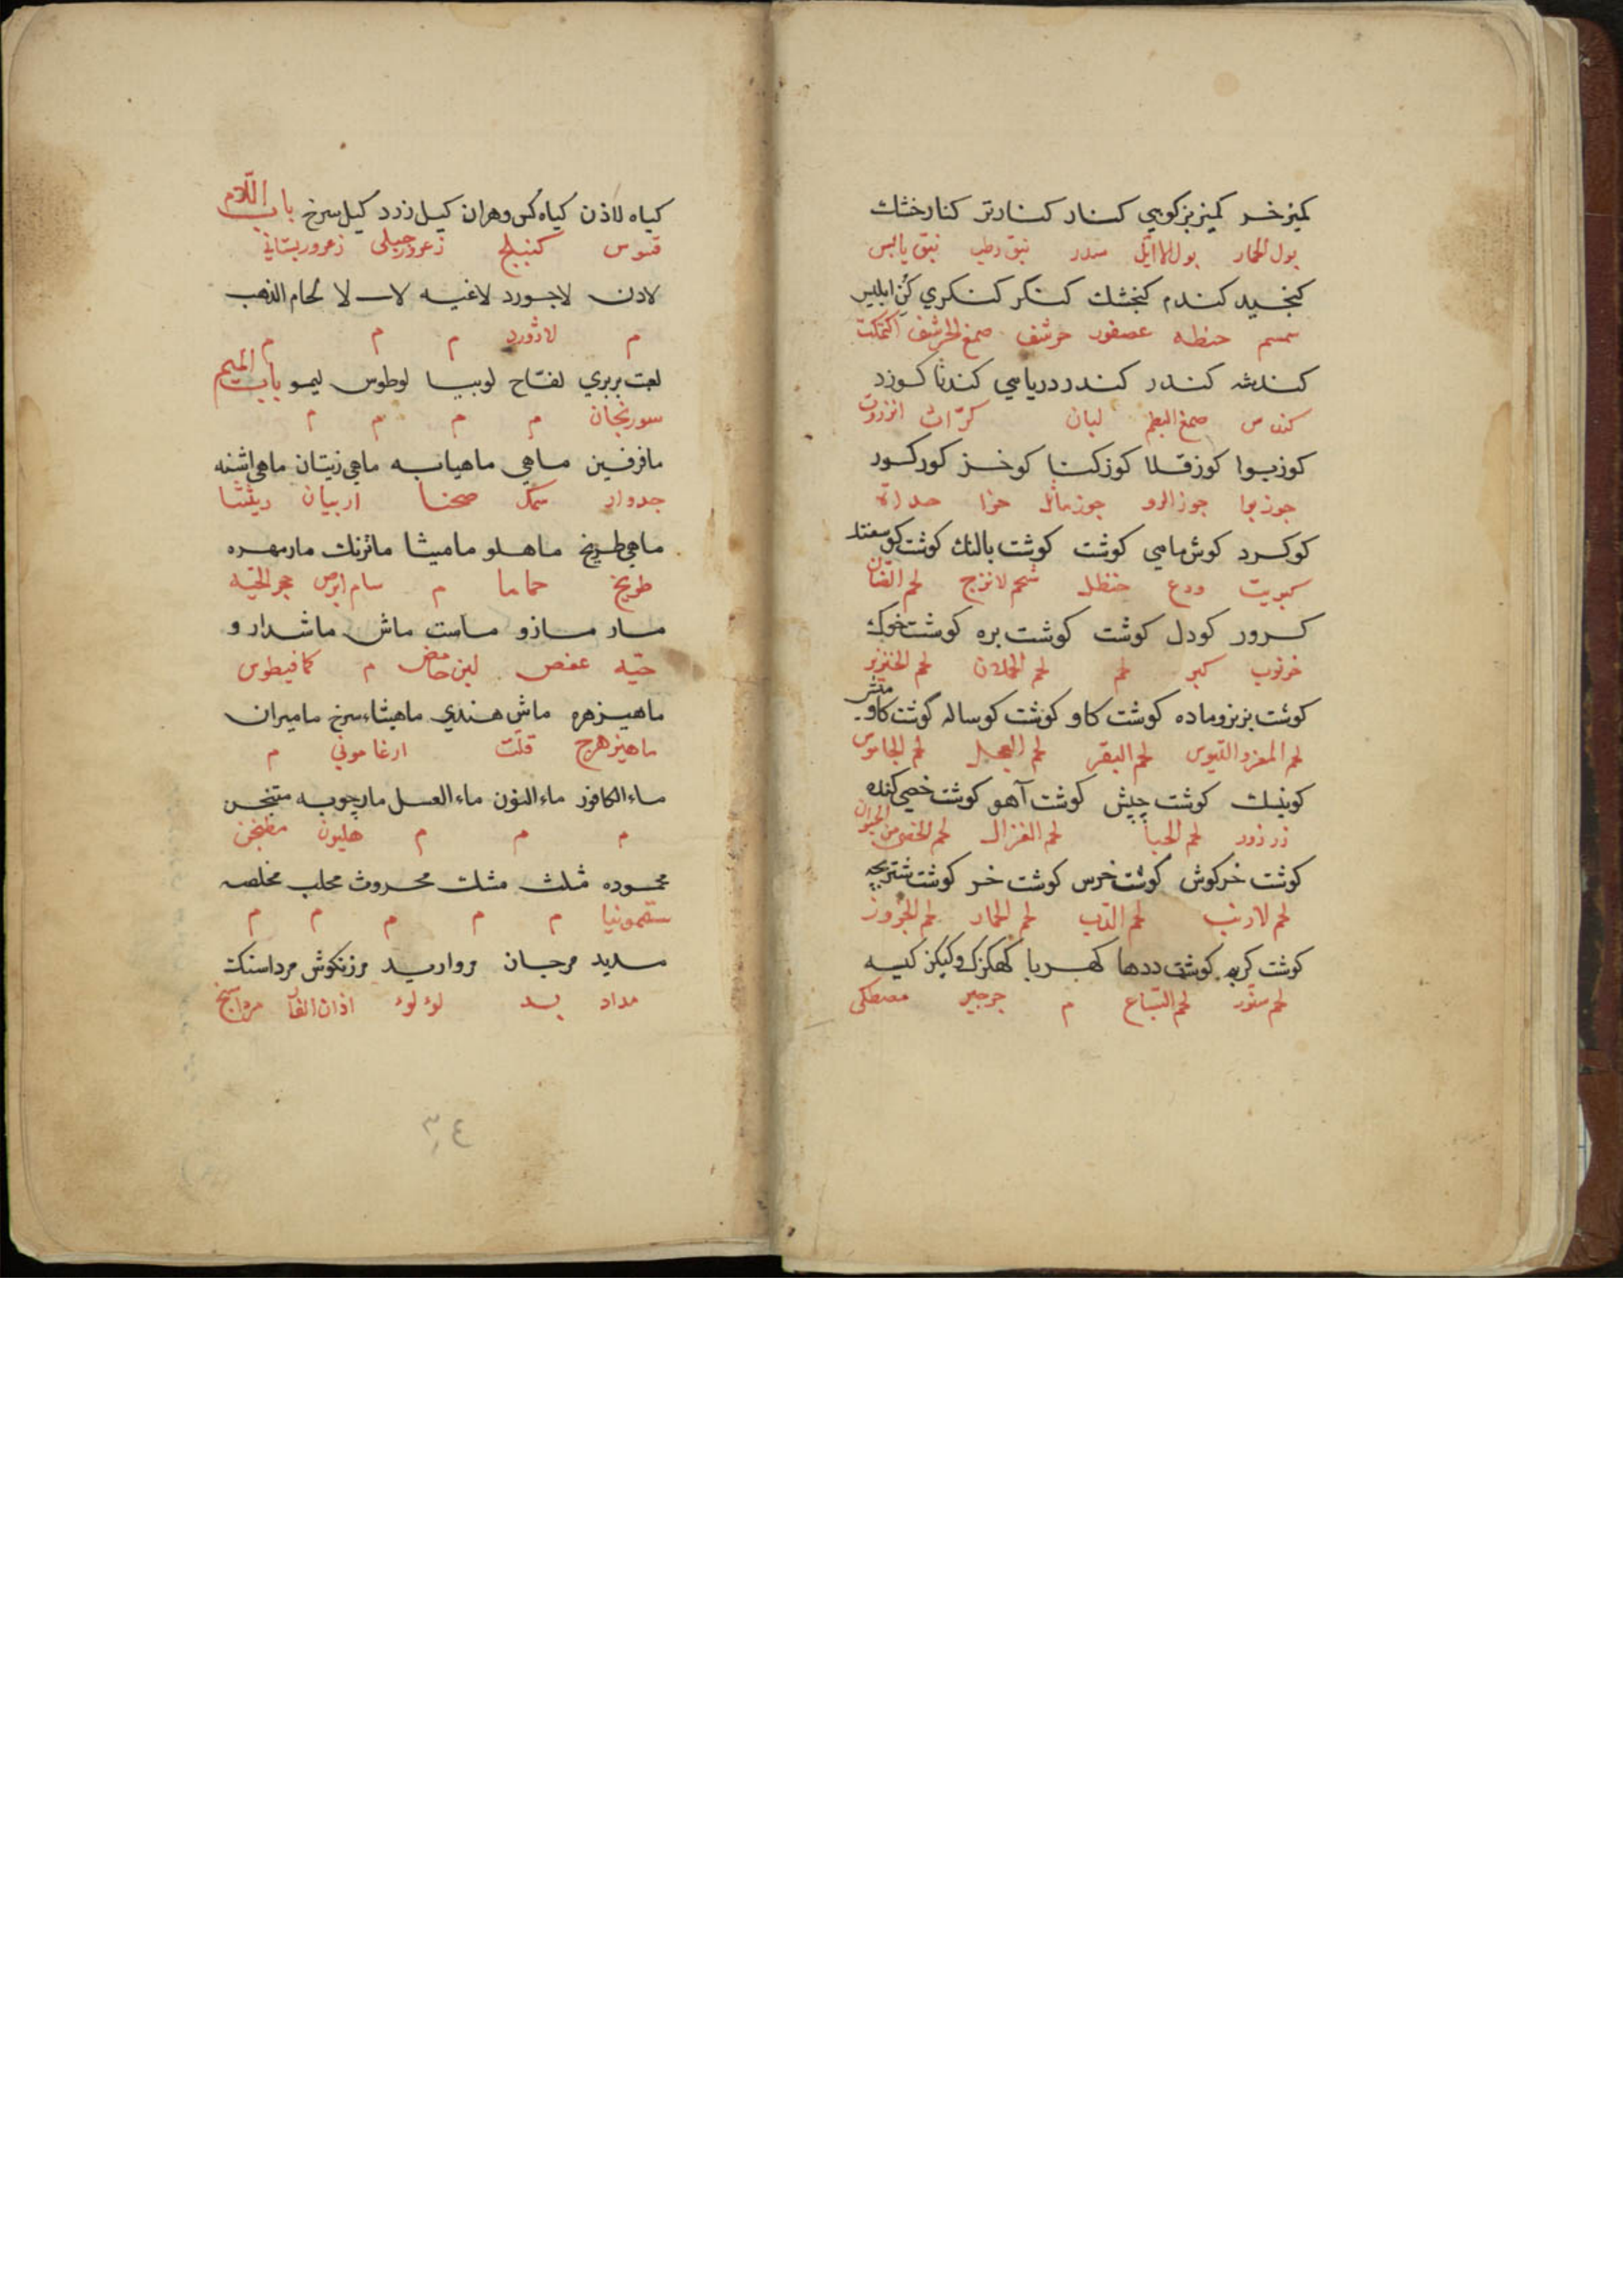 كميز خر كميز بز كوهي كنار كنار تر كنار خشك
بول الحمار بول الاايل سدر نبق رطب نبق يابس
كنجيد كندم كنجشك كنكر كنكري كن ابليس
سمسم حنطه عصفور حرشف صمغ الحرشف اكتمكت
كندشه كندر كندر دريامي كندنا كوزد
كندس صمغ البطم لبان كرّاث انزروت
كوزبوا كوز قلا كوز كنا كوخز كوركور
جوزبوا جوز الرو جوز ماثل حزا
كوكرد كوش ماهي كوشت كوشت بالنك كوشت كوسفند
كبريت ودع حنظل شحم لاترج لحم الضان
كرور كودل كوشت كوشت بره كوشت خوك
خرنوب كبر لحم لحم الحملان لحم الخنزير
كوشت بز نر وماده كوشت كاو كوشت كوساله كوشت كاوميش
لحم المعز والتيوس لحم البقر لحم العجل لحم الجاموس
كوينك كوشت چپش كوشت آهو كوشت خصي كنده
زرزور لحم الغزال لحم الخصي من الحيوان
كوشت خركوش كوشت خرس كوشت خر كوشت شتر بچه
لحم لارنب لحم الدب لحم الحمار لحم الجزور
كوشت كربه كوشت ددها كهربا كهكزك وكيكز كيه
لحم سنّور لحم السّباع م جرجير مصطكى
كياه لاذن كياه كس وهران كيل زرد كيل سرخ باب اللّام
قسوس زعرور جبلى زعرور بستاني
لادن لاجورد لاغيه لا لحام الذهب
م لاژورد م م م
لعبت بربري لفّاح لوبيا لوطوس ليمو باب الميم
سورنجان م م م م
مافرفين ماهي ماهيابه ماهي زيتان ماهي اشنه
جدوار سمك صحنا اربيان ريثثا
ماهي طريخ ماهلو ماميثا ماترنك مارمهره
طريخ حماما م سام ابرص حجر الحيّه
مار مازو ماست ماش ماشدارو
حيّه عفص لبن حامض م كمافيطوس
ماهيزهره ماش هندي ماهيثاء سرخ ماميران
ماهيزهرج قلّت ارغاموني م
ماء الكافور ماء النون ماء العسل مارچوبه متبخن
م م م هليون مطبخن
محموده مثلث مشك محروث محلب مخلصه
سقمونيا م م م م م
مديد مرجان مرواريد مرزنكوش مرداسنك
مداد بسد لوء لوء اذان الفار مرداسنج
٣٤